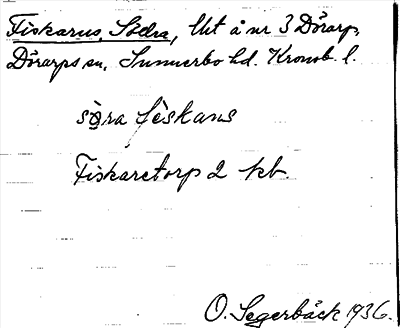 Fiskarus, Södra, lht å nr 3 Dörarp,
Dörarps sn, Sunnerbo hd. Kronob. l.
söra fèskans
Fiskaretorp 2 kb.
O. Segerbäck 1936.